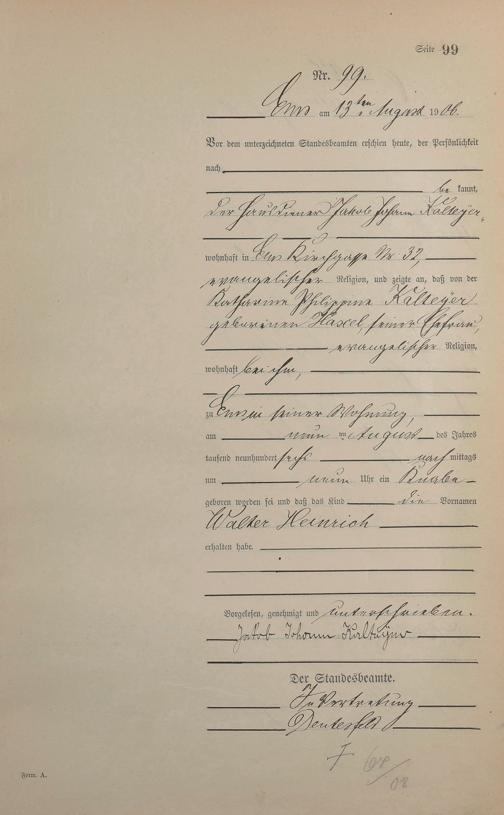 Seite 99
Nr. 99.
Ems am 13ten August 1906.
Vor dem unterzeichneten Standesbeamten erschien heute, der Persönlichkeit
nach
be kannt,
der Hausdiener Jakob Johann Kalteyer,
wohnhaft in Ems Kirchgasse Nr 32,
evangelischer Religion, und zeigte an, daß von der
Katharine Philippine Kalteyer
geborenen Haxel, seiner Ehefrau,
evangelischer Religion,
wohnhaft bei ihm,
zu Ems in seiner Wohnung,
am neunten August des Jahres
tausend neunhundert sechs nach mittags
um neun Uhr ein Knabe
geboren worden sei und daß das Kind die Vornamen
Walter Heinrich
erhalten habe.
Vorgelesen, genehmigt und unterschrieben.
Jakob Johann Kalteyer
Der Standesbeamte.
In Vertretung
Form. A.